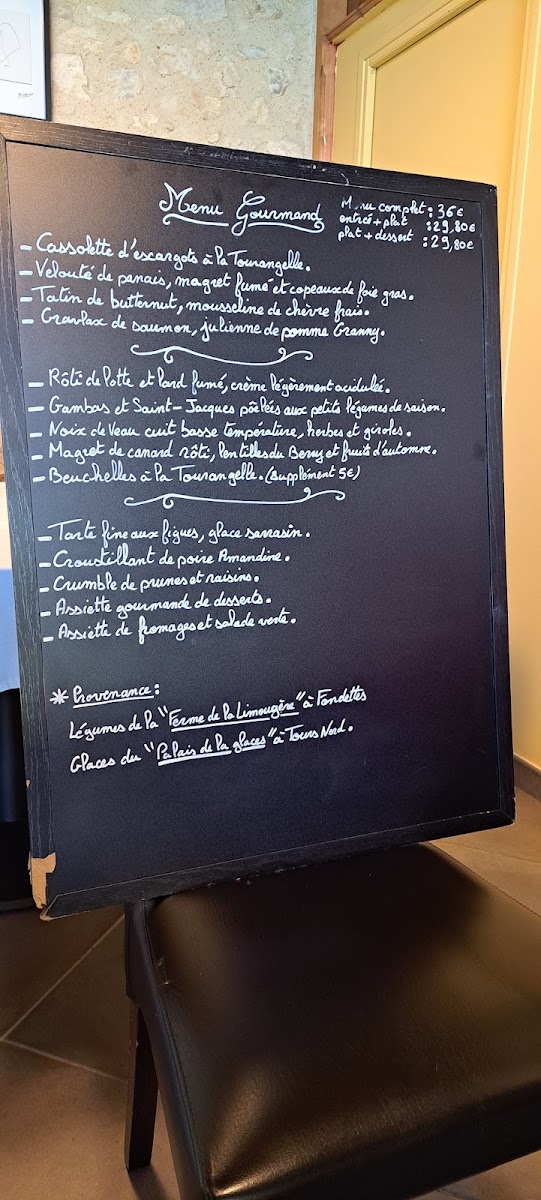 Menu Gourmand
Menu complet : 36€
entrée + plat : 29,80€
plat + dessert : 29,80€
- Cassolette d'escargots à la Tourangelle.
- Velouté de panais, magret fumé et copeaux de foie gras.
- Tatin de butternut, mousseline de chèvre frais.
- Gravlax de saumon, julienne de pomme Granny.
- Rôti de lotte et lard fumé, crème légèrement acidulée.
- Gambas et Saint-Jacques poêlées aux petits légumes de saison.
- Noix de Veau cuit basse température, herbes et girolles.
- Magret de canard rôti, lentilles du Berry et fruits d'automne.
- Beuchelles à la Tourangelle. (supplément 5€)
- Tarte fine aux figues, glace sarrasin.
- Croustillant de poire Amandine.
- Crumble de prunes et raisins.
- Assiette gourmande de desserts.
- Assiette de fromages et salade verte.
* Provenance :
Légumes de la "Ferme de la Limougère" à Fondettes
Glaces du "Palais de la glaces" à Tours Nord.